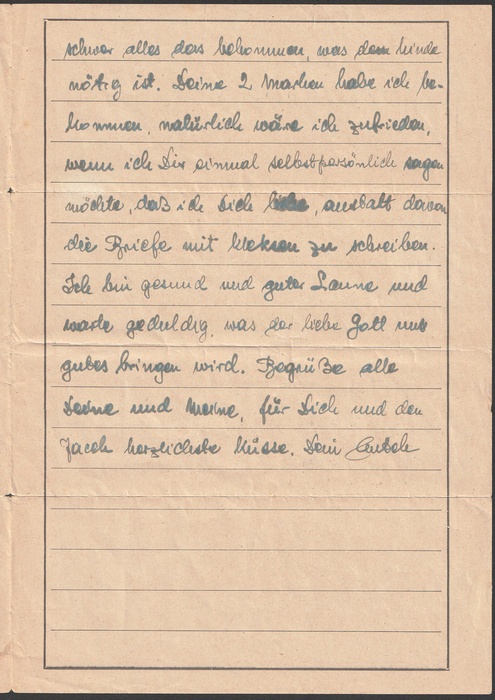 schwer alles das bekommen, was dem Kinde
nötig ist. Deine 2 Marken habe ich be-
kommen, natürlich wäre ich zufrieden,
wenn ich Dir einmal selbstpersönlich sagen
möchte, daß ich Dich liebe, anstatt davon
die Briefe mit kleksen zu schreiben.
Ich bin gesund und guter Laune und
warte geduldig, was der liebe Gott uns
gutes bringen wird. Begrüße alle
Deine und Meine, für Dich und den
Jacek herzlichste Küsse. Dein